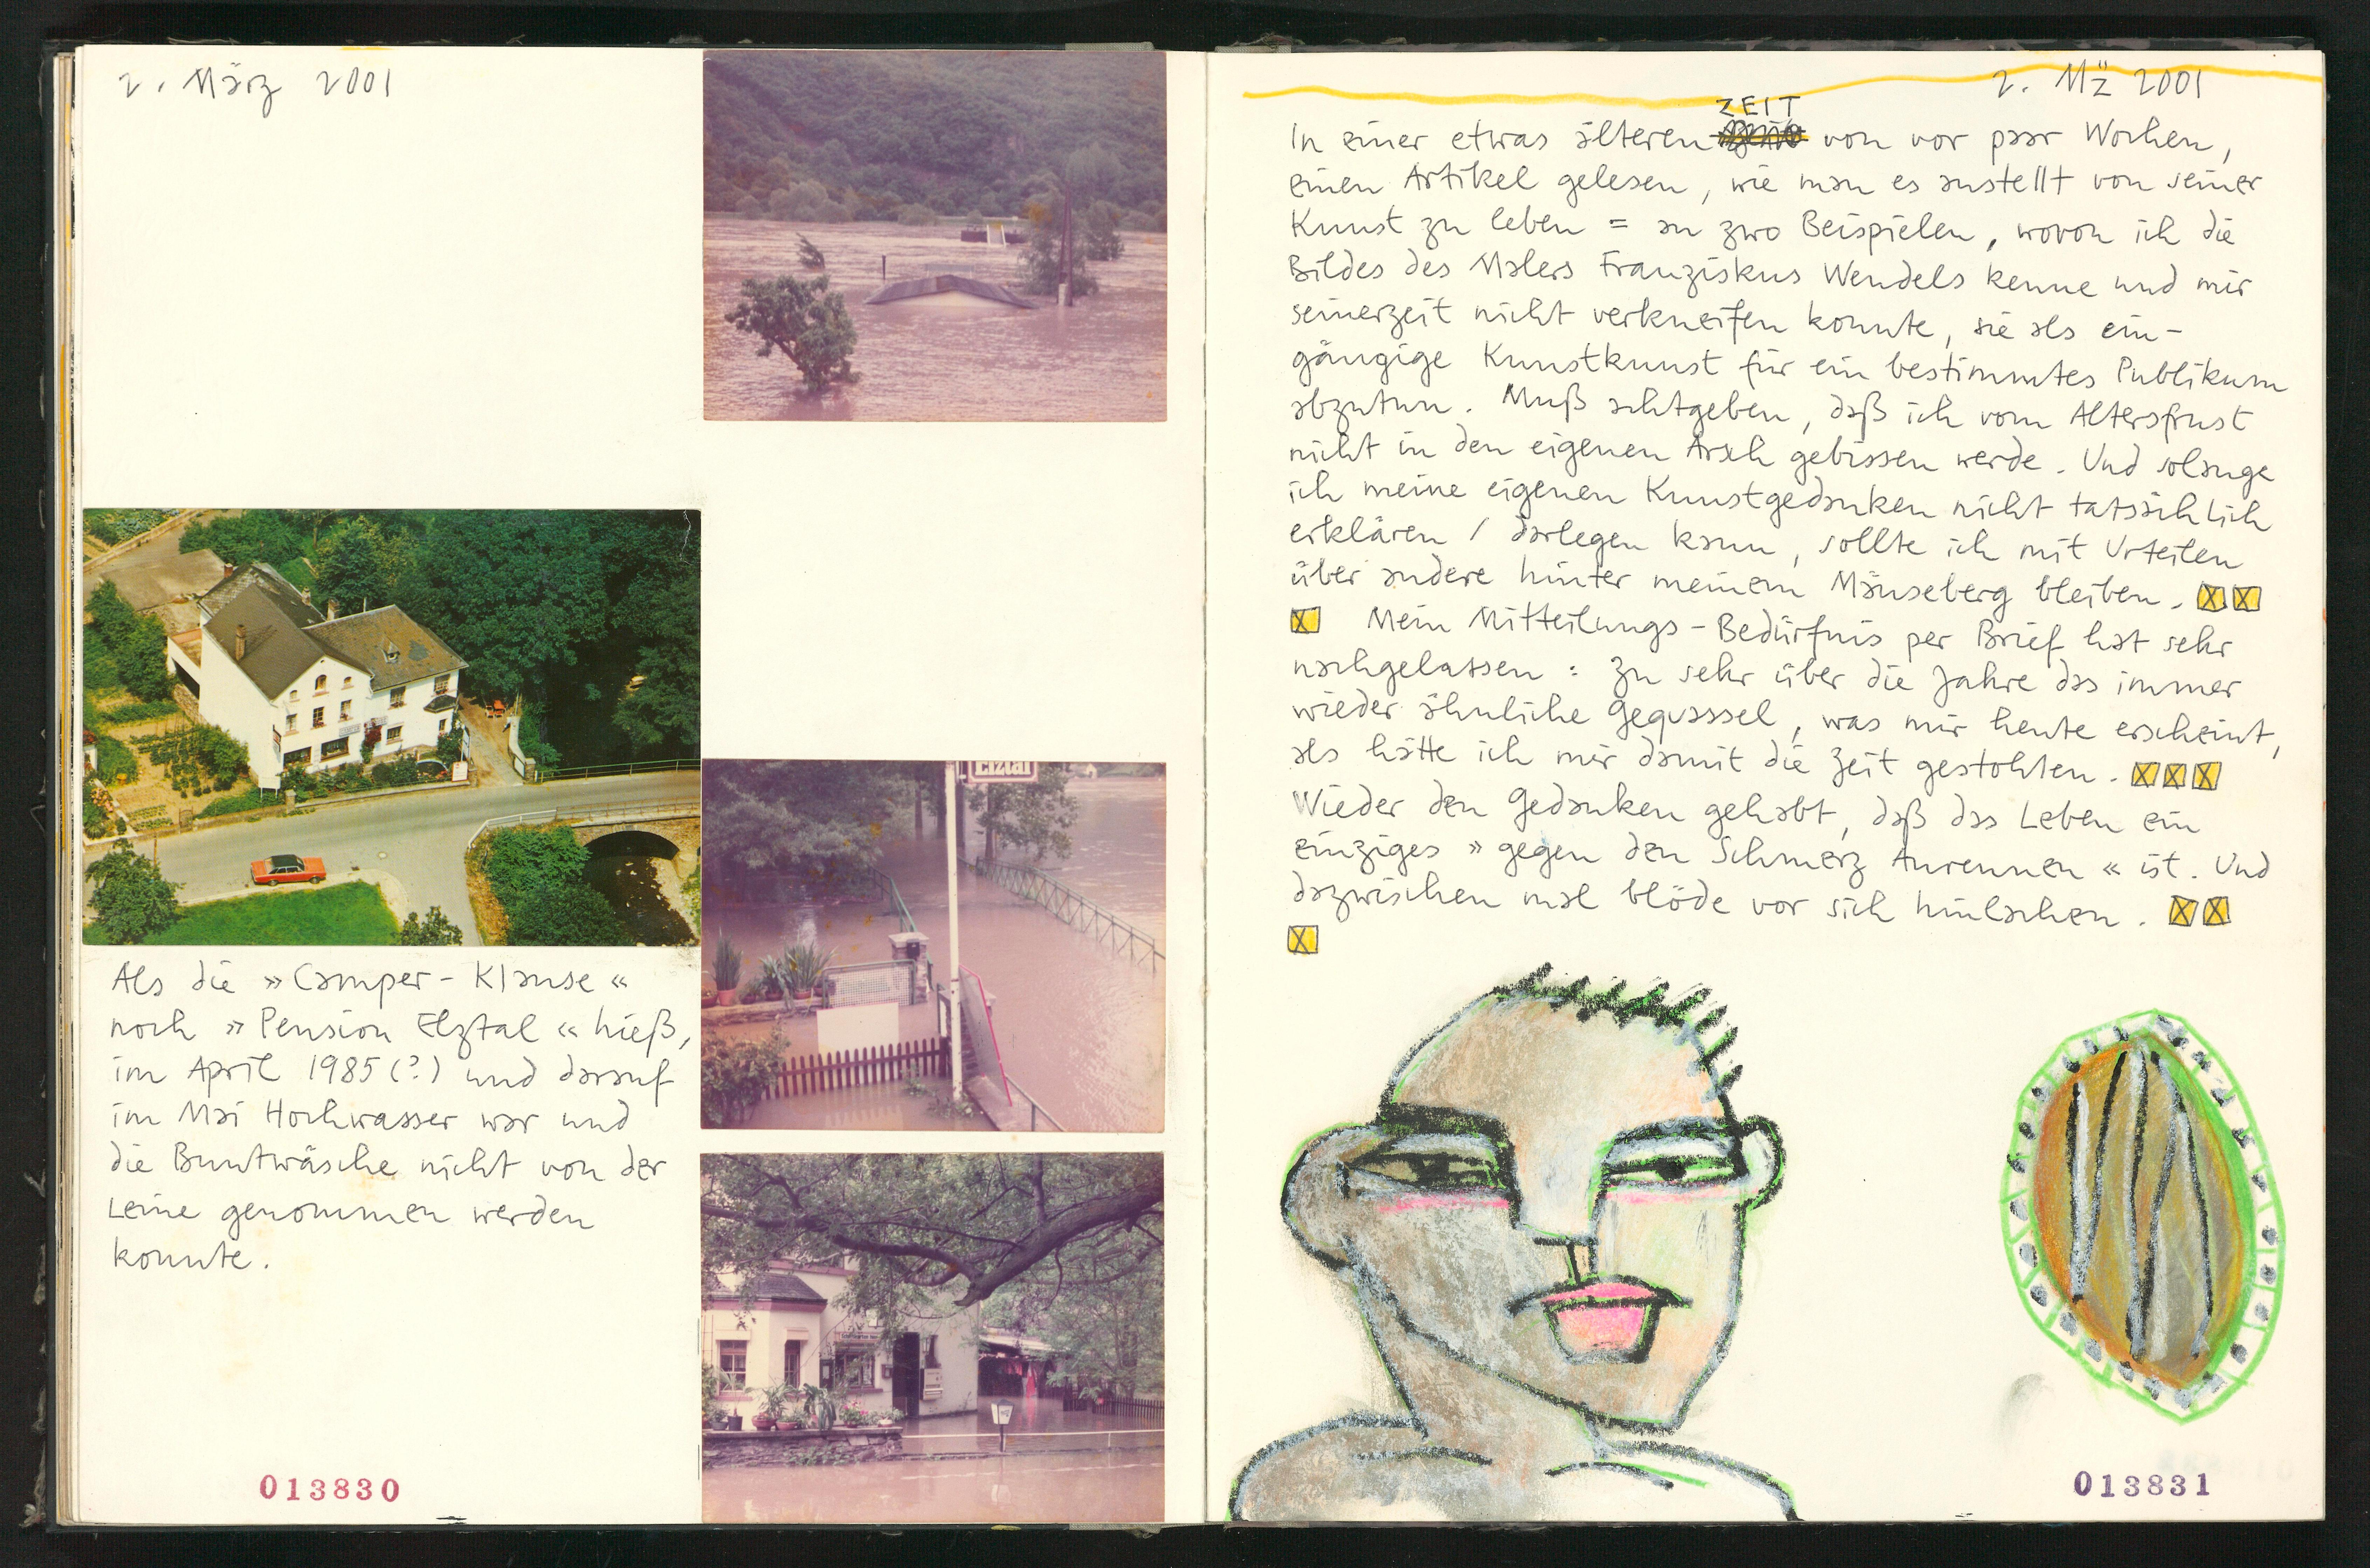 2. März 2001
Elztal
Als die »Camper-Klause«
noch »Pension Elztal« hieß,
im April 1985 (?) und darauf
im Mai Hochwasser war und
die Buntwäsche nicht von der
Leine genommen werden
konnte.
013830
2. MÄZ 2001
ZEIT
In einer etwas älteren von vor paar Wochen,
einen Artikel gelesen, wie man es anstellt von seiner
Kunst zu leben = an zwo Beispielen, wovon ich die
Bildes des Malers Franziskus Wendels kenne und mir
seinerzeit nicht verkneifen konnte, sie als ein-
gängige Kunstkunst für ein bestimmtes Publikum
abzutun. Muß achtgeben, daß ich vom Altersfrust
nicht in den eigenen Arsch gebissen werde. Und solange
ich meine eigenen Kunstgedanken nicht tatsächlich
erklären / darlegen kann, sollte ich mit Urteilen
über andere hinter meinem Mäuseberg bleiben.
Mein Mitteilungs-Bedürfnis per Brief hat sehr
nachgelassen: Zu sehr über die Jahre das immer
wieder ähnliche Gequassel, was mir heute erscheint,
als hätte ich mir damit die Zeit gestohlen.
Wieder den Gedanken gehabt, daß das Leben ein
einziges »gegen den Schmerz Anrennen« ist. Und
dazwischen mal blöde vor sich hinlachen.
013831